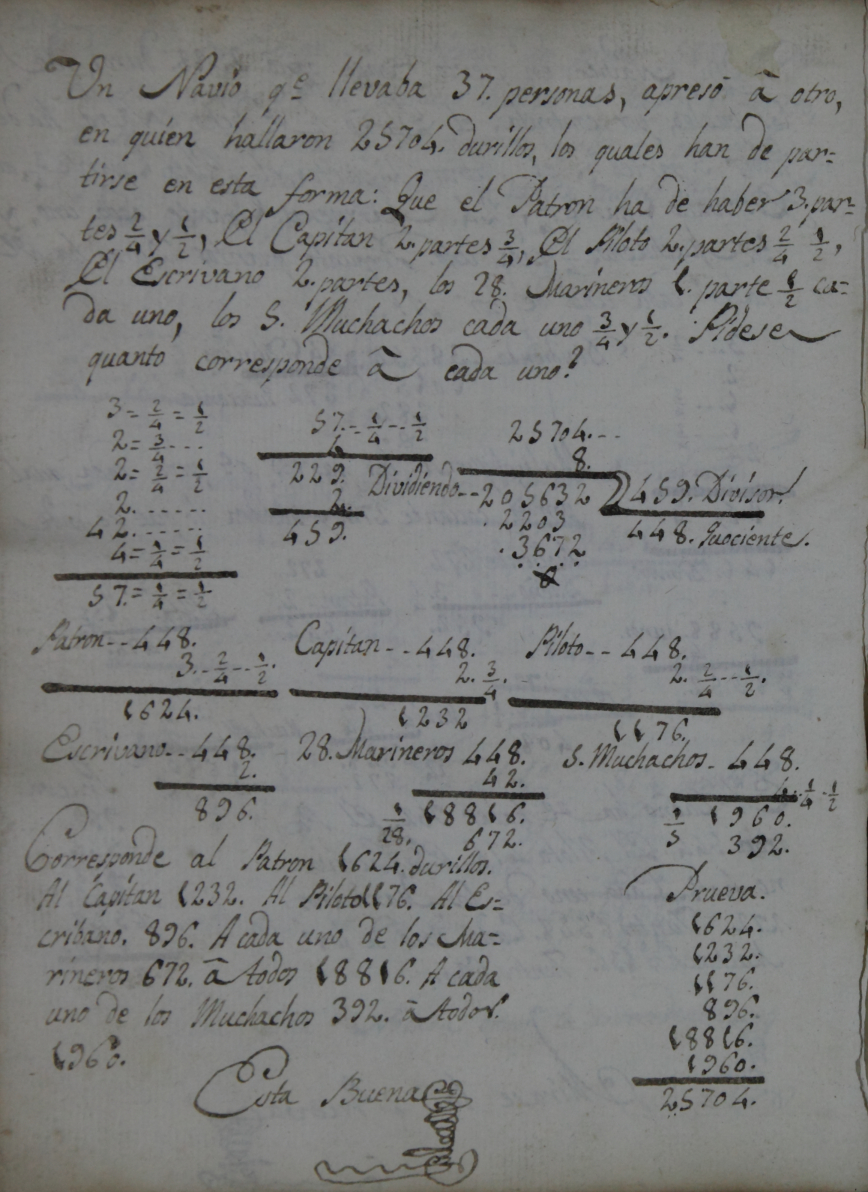 Un Navio q.e llevaba 37. personas, apresó â otro,
en quien hallaron 25704. durillos, los quales han de par=
tirse en esta forma: Que el Patron ha de haber 3. par=
tes 2/4 y 1/2, El Capitan 2. partes 3/4, El Piloto 2. partes 2/4 1/2,
El Escrivano 2. partes, los 28. Marineros 1. parte 1/2 ca=
da uno, los 5. Muchachos cada uno 3/4 y 1/2. Pidese
quanto corresponde â cada uno?
3 = 2/4 = 1/2
2 = 3/4 ---
2 = 2/4 = 1/2
2. -----
42. -----
4 = 1/4 = 1/2
57. = 1/4 = 1/2
57. -- 1/4 -- 1/2
4.
229.
2.
459.
25704. --
8.
Dividiendo -- 205632 459. Divisor
. 2203 448. Quociente.
. 3672
0
Patron -- 448.
3. -- 2/4 -- 1/2.
1624.
Capitan -- 448.
2. 3/4. -
1232
Piloto -- 448.
2. 2/4 -- 1/2.
1176.
Escrivano -- 448.
2.
896.
28. Marineros 448.
42.
1/28. 18816.
672.
5. Muchachos - 448.
4. - 1/4 - 1/2
1/5 1960.
392.
Corresponde al Patron 1624. durillos.
Al Capitan 1232. Al Piloto 1176. Al Es=
cribano. 896. A cada uno de los Ma=
rineros 672. â todos 18816. A cada
uno de los Muchachos 392. â todos.
1960.
Prueva.
1624.
1232.
1176.
896.
18816.
1960.
25704.
Esta Buena